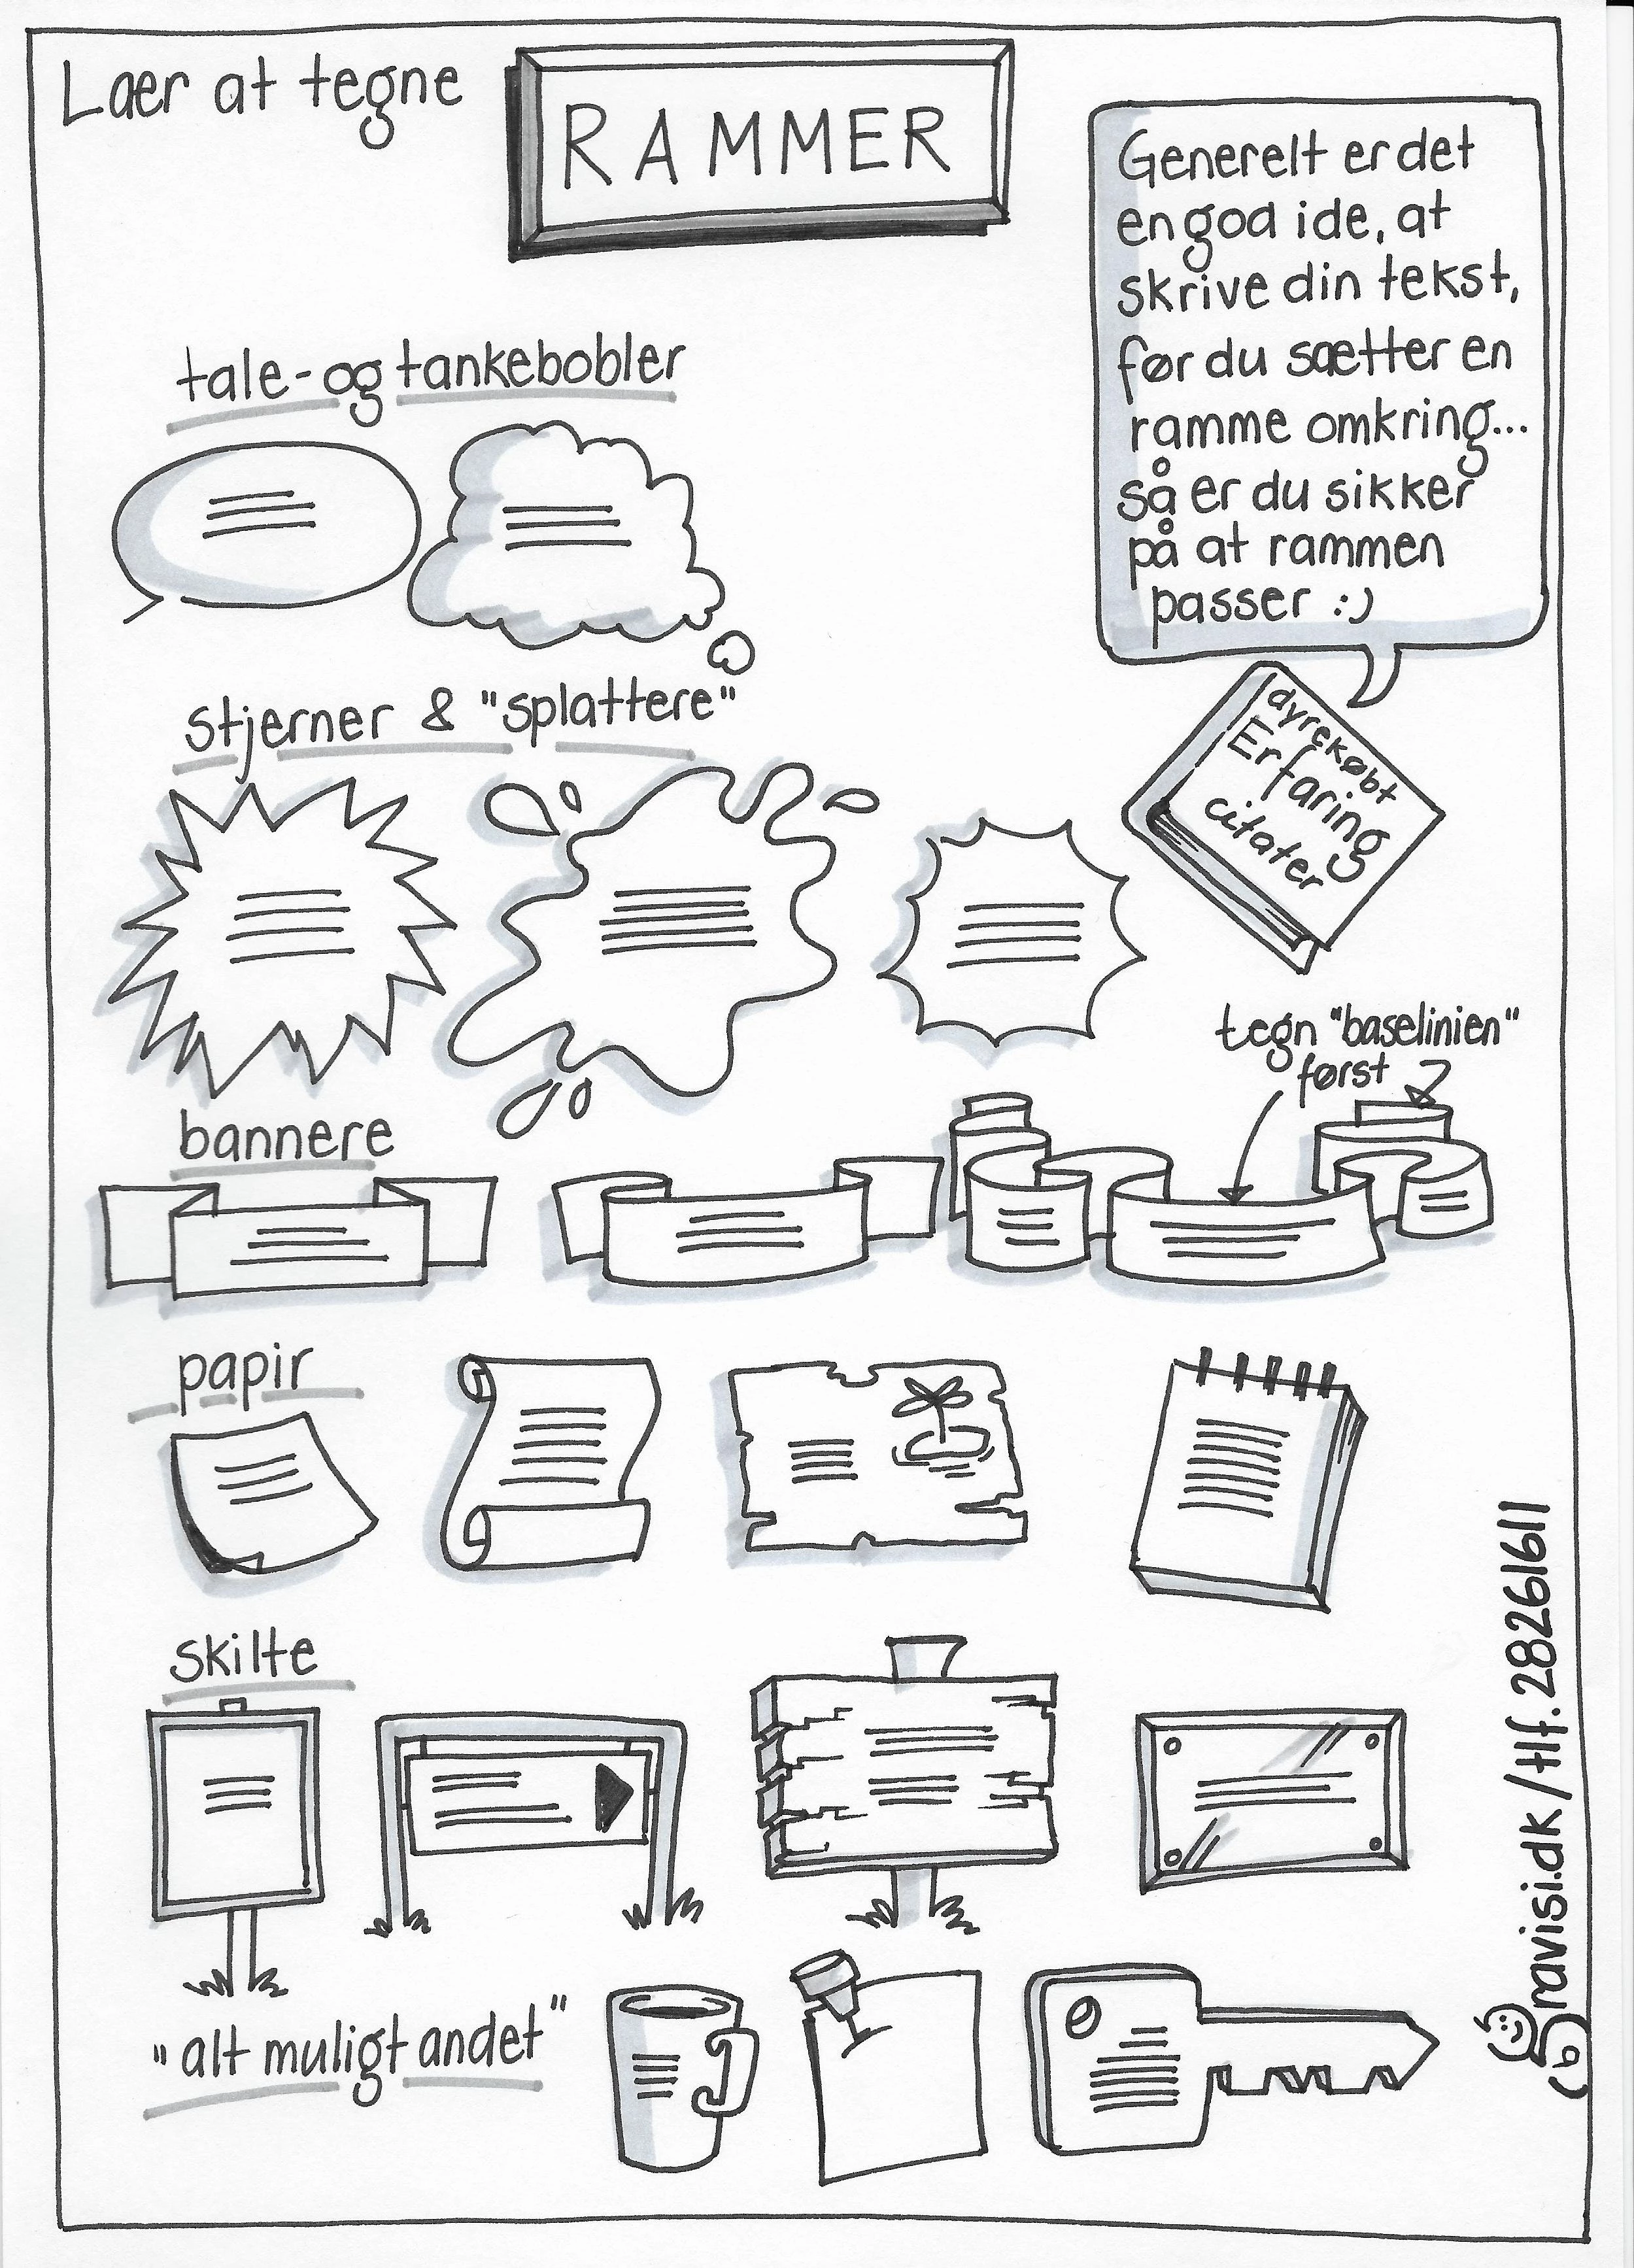 Lær at tegne
RAMMER
Generelt er det
en god ide, at
skrive din tekst,
før du sætter en
ramme omkring...
så er du sikker
på at rammen
passer :)
tale- og tankebobler
stjerner & "splattere"
dyrekøbt
Erfaring
citater
tegn "baselinien"
først
bannere
papir
skilte
"alt muligt andet"
Gravisi.dk/tlf. 28261611